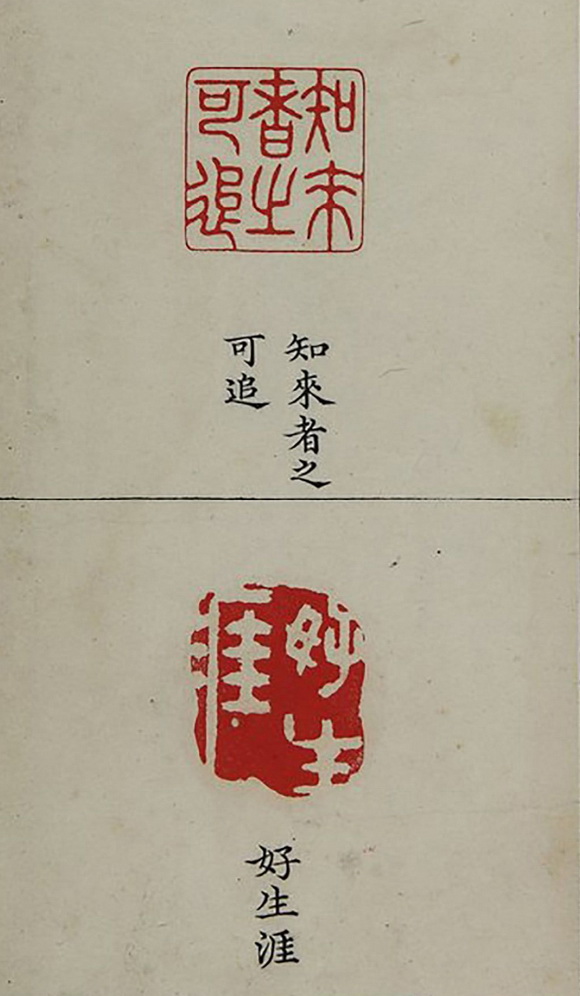 知來
者之
可追
知來者之
可追
好生
涯
好生涯